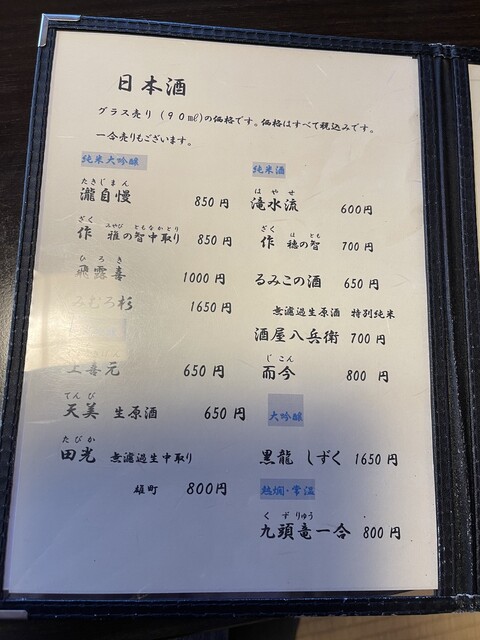 日本酒
グラス売り(90㎖)の価格です。価格はすべて税込みです。
一合売りもございます。
純米大吟醸
たきじまん
瀧自慢 850円
ざく みやび ともなかどり
作 雅の智中取り 850円
ひろき
飛露喜 1000円
みむろ杉 1650円
上喜元 650円
てんび
天美 生原酒 650円
たびか
田光 無濾過生中取り
雄町 800円
純米酒
はやせ
滝水流 600円
ざく ほ とも
作 穂の智 700円
るみこの酒 650円
無濾過生原酒 特別純米
酒屋八兵衛 700円
じこん
而今 800円
大吟醸
黒龍 しずく 1650円
熱燗・常温
くずりゅう
九頭竜一合 800円